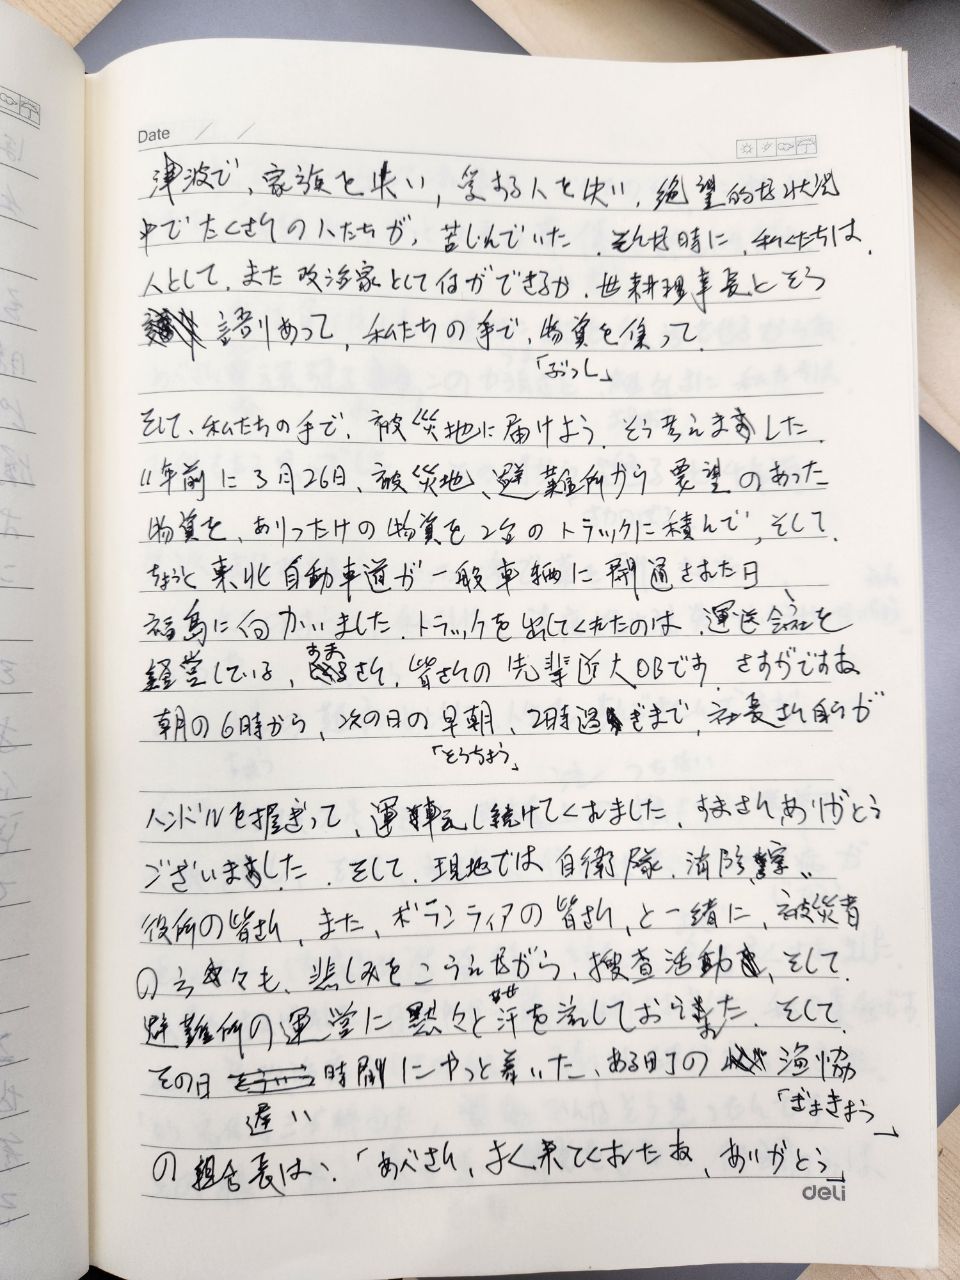 Date / /
津波で、家族を失い、愛する人を失い、絶望的な状況
中でたくさんの人たちが、苦しんでいた、そんな時に、私たちは、
人として、また政治家として何ができるか、世耕理事長とそう
語りあって、私たちの手で、物資を集って、
「ぶっし」
そして、私たちの手で、被災地に届けよう、そう考えました、
11年前に3月26日、被災地、避難所から要望のあった
物資を、ありったけの物資を2台のトラックに積んで、そして、
ちょうど東北自動車道が一般車輌に開通された日、
福島に向かいました、トラックを出してくれたのは、運送会社を
経営している、さん、皆さんの先輩近大OBです、さすがですね
朝の6時から、次の日の早朝、2時過ぎまで、社長さん自らが
「そうちょう」
ハンドルを握ぎって、運転し続けてくれました、さん、ありがとう
ございました、そして、現地では自衛隊、消防、警察、
役所の皆さん、また、ボランティアの皆さん、と一緒に、被災者
の方々も、悲しみをこらえながら、捜査活動、そして、
あせ
避難所の運営に黙々と汗を流しておられました、そして、
その日 時間にやっと着いた、ある町の 漁協
遅い 「ぎょきょう」
の組合長は：「あべさん、よく来てくれたね、ありがとう」
deli